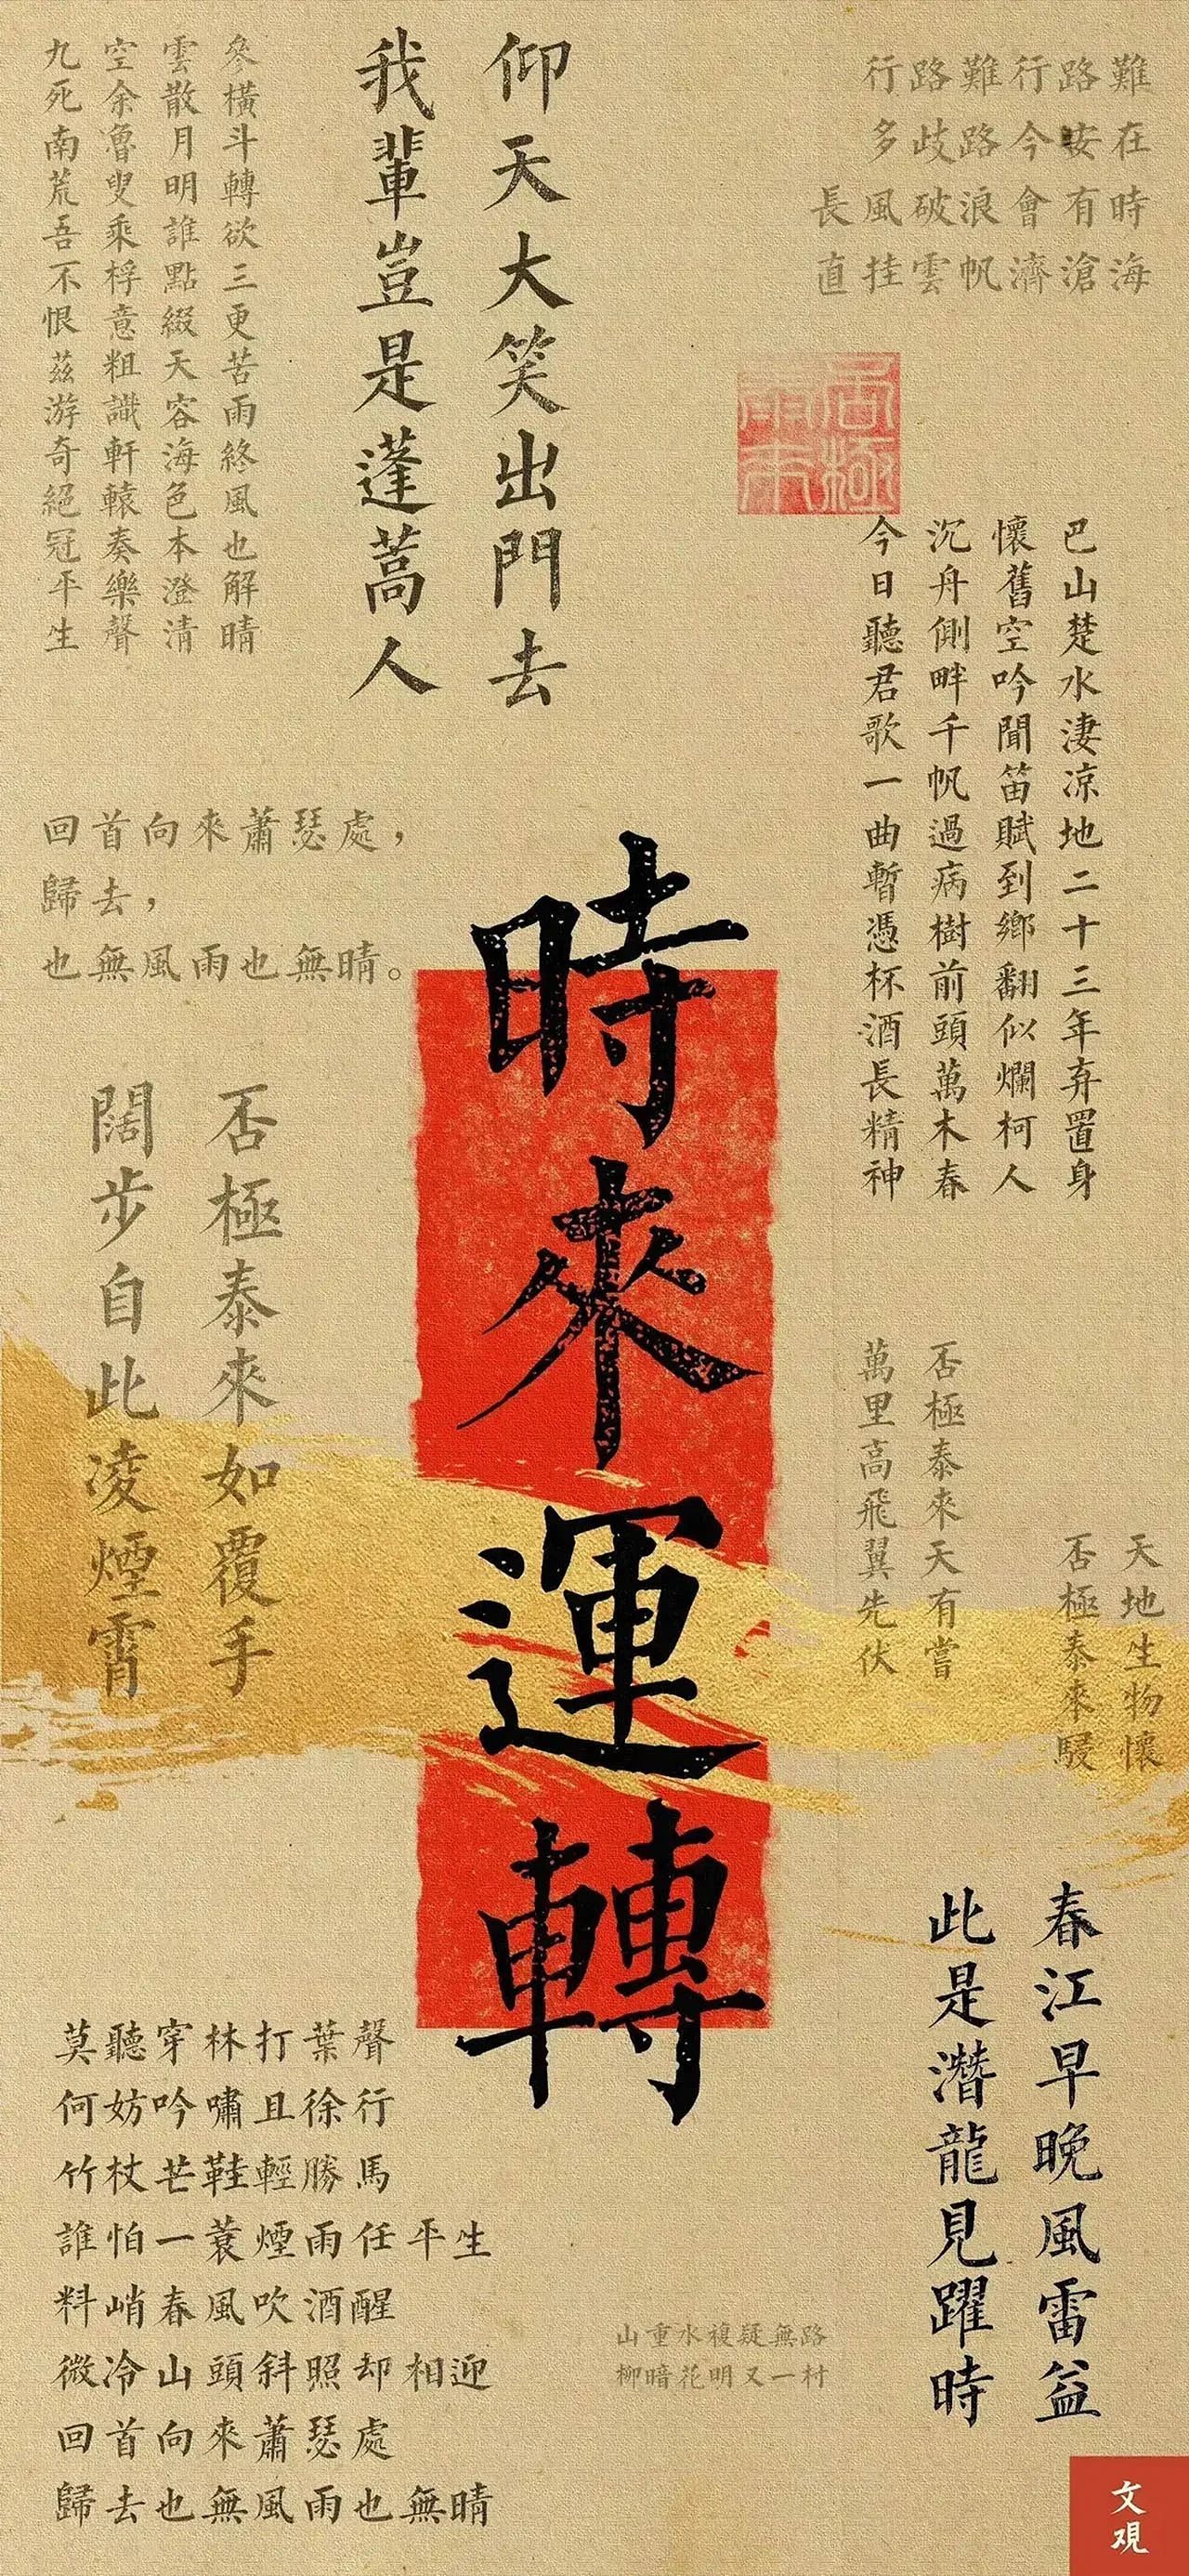 行路難行路難
多歧路今安在
長風破浪會有時
直挂雲帆濟滄海
仰天大笑出門去
我輩豈是蓬蒿人
參橫斗轉欲三更苦雨終風也解晴
雲散月明誰點綴天容海色本澄清
空余魯叟乘桴意粗識軒轅奏樂聲
九死南荒吾不恨茲游奇絕冠平生
巴山楚水淒凉地二十三年弃置身
懷舊空吟聞笛賦到鄉翻似爛柯人
沉舟側畔千帆過病樹前頭萬木春
今日聽君歌一曲暫憑杯酒長精神
回首向來蕭瑟處，
歸去，
也無風雨也無晴。
時來運轉
否極泰來如覆手
闊步自此凌煙霄
否極泰來天有嘗
萬里高飛翼先伏
天地生物懷
否極泰來駸
春江早晚風雷益
此是潛龍見躍時
莫聽穿林打葉聲
何妨吟嘯且徐行
竹杖芒鞋輕勝馬
誰怕一蓑煙雨任平生
料峭春風吹酒醒
微冷山頭斜照却相迎
回首向來蕭瑟處
歸去也無風雨也無晴
山重水複疑無路
柳暗花明又一村
文覌